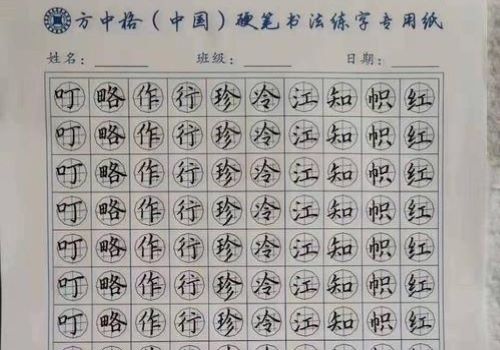 方中格（中国）硬笔书法练字专用纸
姓名： 班级： 日期：
叮略作行珍冷江知帜红
叮略作行珍冷江知帜红
叮略作行珍冷江知帜红
叮略作行珍冷江知帜红
叮略作行珍冷江知帜红
叮略作行珍冷江知帜红
叮略作行珍冷江知帜红